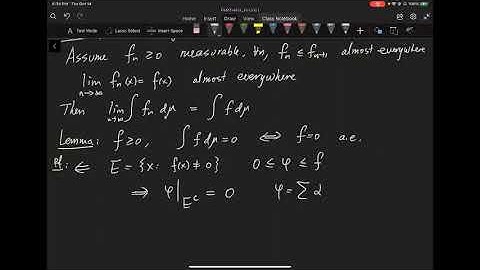 Tue Oct 14
Home Insert Draw View Class Notebook
Text Mode Lasso Select Insert Space
Assume fₙ ≥ 0 measurable, ∀n, fₙ ≤ fₙ₊₁ almost everywhere
lim n→∞ fₙ(x) = f(x) almost everywhere
Then lim n→∞ ∫ fₙ dμ = ∫ f dμ
Lemma: f ≥ 0, ∫ f dμ = 0 ⟺ f = 0 a.e.
Pf: ⇐ E = {x: f(x) ≠ 0} 0 ≤ φ ≤ f
⇒ φ|_{E^c} = 0 φ = Σ α